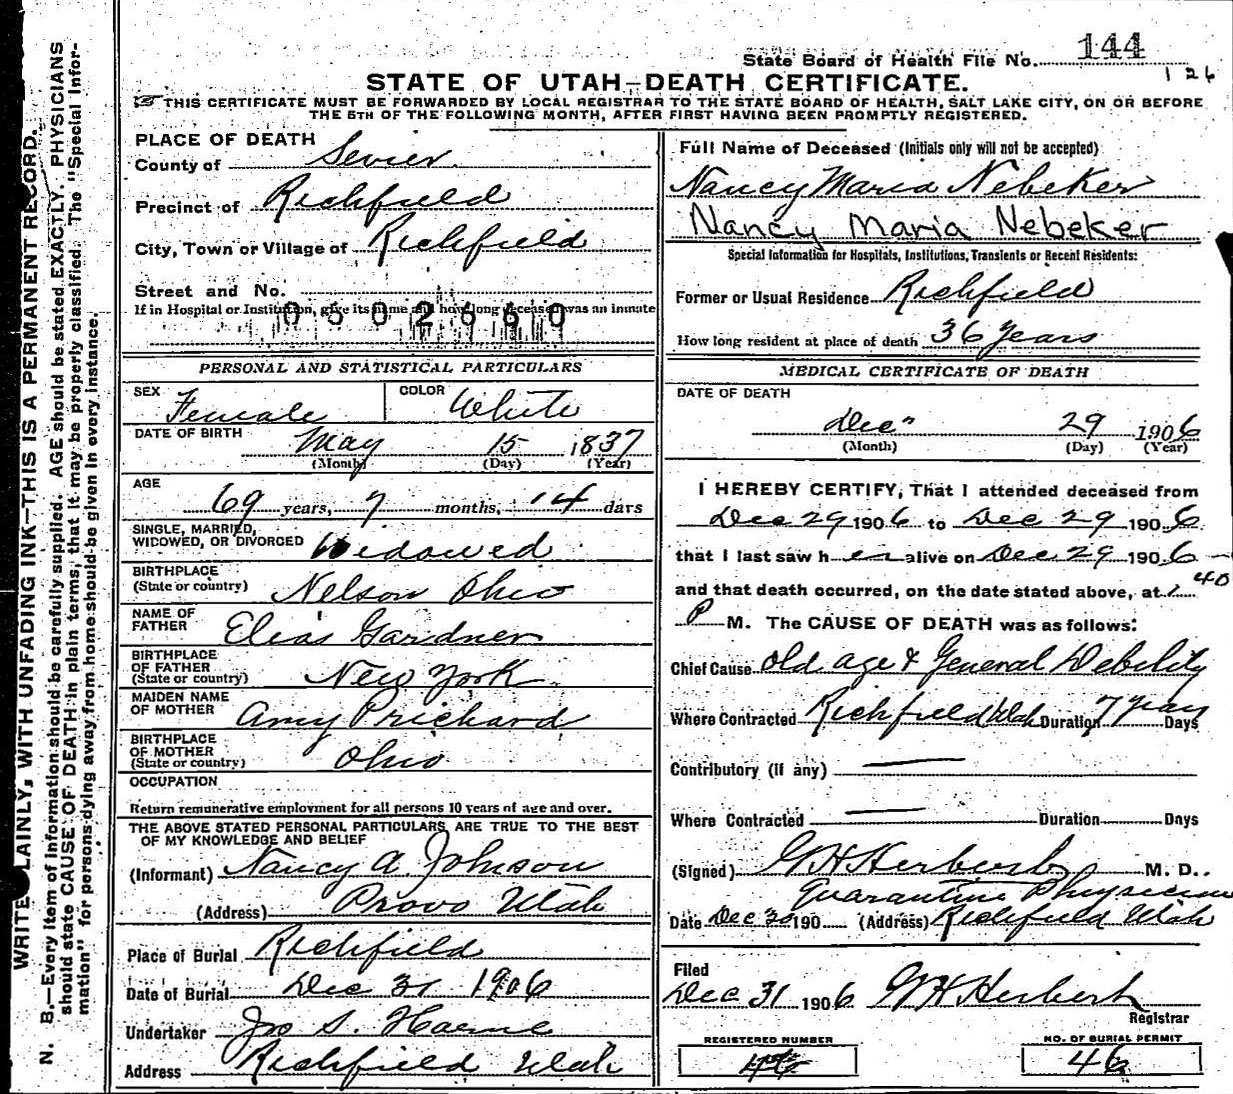 State Board of Health File No. 144
126
STATE OF UTAH—DEATH CERTIFICATE.
THIS CERTIFICATE MUST BE FORWARDED BY LOCAL REGISTRAR TO THE STATE BOARD OF HEALTH, SALT LAKE CITY, ON OR BEFORE
THE 5TH OF THE FOLLOWING MONTH, AFTER FIRST HAVING BEEN PROMPTLY REGISTERED.
PLACE OF DEATH
County of Sevier
Precinct of Richfield
City, Town or Village of Richfield
Street and No.
If in Hospital or Institution, give its name and how long deceased was an inmate
PERSONAL AND STATISTICAL PARTICULARS
SEX Female COLOR White
DATE OF BIRTH May 15 1837
(Month) (Day) (Year)
AGE
69 years, 7 months, 14 days
SINGLE, MARRIED,
WIDOWED, OR DIVORCED Widowed
BIRTHPLACE
(State or country) Nelson Ohio
NAME OF
FATHER Elias Gardner
BIRTHPLACE
OF FATHER
(State or country) New York
MAIDEN NAME
OF MOTHER Amy Prichard
BIRTHPLACE
OF MOTHER
(State or country) Ohio
OCCUPATION
Return remunerative employment for all persons 10 years of age and over.
THE ABOVE STATED PERSONAL PARTICULARS ARE TRUE TO THE BEST
OF MY KNOWLEDGE AND BELIEF
(Informant) Nancy A. Johnson
(Address) Provo Utah
Place of Burial Richfield
Date of Burial Dec 31 1906
Undertaker Jno S. Horne
Address Richfield Utah
Full Name of Deceased (Initials only will not be accepted)
Nancy Maria Nebeker
Nancy Maria Nebeker
Special Information for Hospitals, Institutions, Transients or Recent Residents:
Former or Usual Residence Richfield
How long resident at place of death 36 years
MEDICAL CERTIFICATE OF DEATH
DATE OF DEATH
Dec" 29 1906
(Month) (Day) (Year)
I HEREBY CERTIFY, That I attended deceased from
Dec 29 1906 to Dec 29 1906
that I last saw her alive on Dec 29 1906
and that death occurred, on the date stated above, at 1 40
P M. The CAUSE OF DEATH was as follows:
Chief Cause old age & General Debility
Where Contracted Richfield Utah Duration 7 years Days
Contributory (if any)
Where Contracted Duration Days
(Signed) G H Herbert M. D.
Quarantine Physician
Date Dec 30 190 (Address) Richfield Utah
Filed
Dec 31 1906 G H Herbert
Registrar
REGISTERED NUMBER
NO. OF BURIAL PERMIT
46
WRITE PLAINLY, WITH UNFADING INK—THIS IS A PERMANENT RECORD.
N. B.—Every item of information should be carefully supplied. AGE should be stated EXACTLY. PHYSICIANS
should state CAUSE OF DEATH in plain terms, that it may be properly classified. The "Special Infor-
mation" for persons dying away from home should be given in every instance.